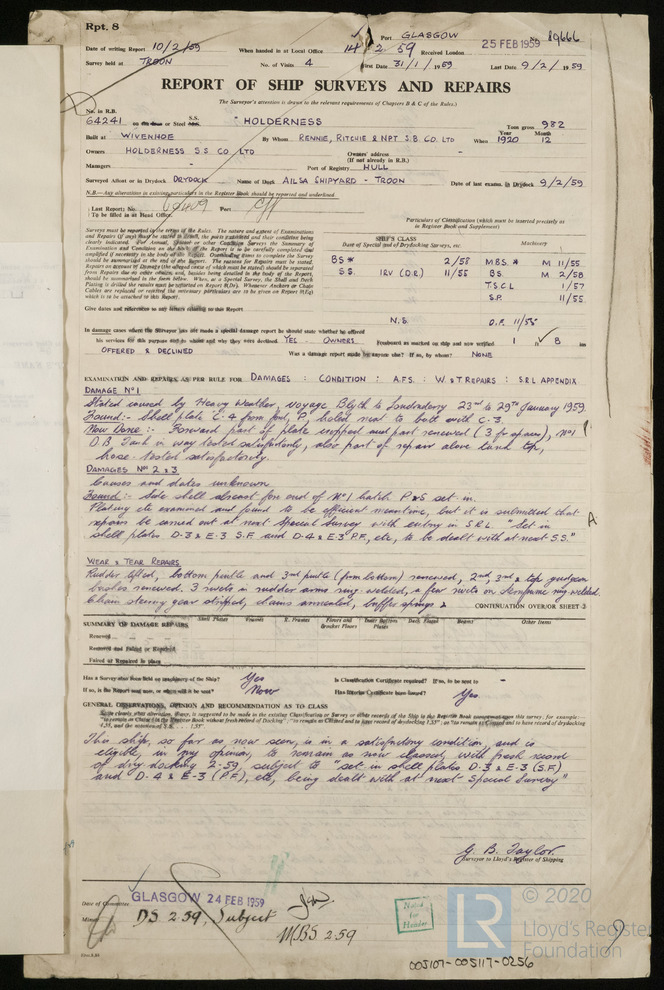 Rpt. 8
Port GLASGOW No. 89666
Date of writing Report 10/2/59 When handed in at Local Office 14/2/59 Received London 25 FEB 1959
Survey held at TROON No. of Visits 4 First Date 31/1/1959 Last Date 9/2/1959
REPORT OF SHIP SURVEYS AND REPAIRS
(The Surveyor's attention is drawn to the relevant requirements of Chapters B & C of the Rules.)
No. in R.B.
64241 on the or Steel S.S. "HOLDERNESS Tons gross 982
Built at WIVENHOE By Whom RENNIE, RITCHIE & NPT S.B. CO. LTD When Year 1920 Month 12
Owners HOLDERNESS S.S. CO LTD Owners' address (If not already in R.B.) -
Managers Port of Registry HULL
Surveyed Afloat or in Drydock DRYDOCK Name of Dock AILSA SHIPYARD - TROON Date of last exam. in Drydock 9/2/59
N.B.—Any alterations in existing particulars in the Register Book should be reported and underlined.
Last Report: No. Port
To be filled in at Head Office.
Particulars of Classification (which must be inserted precisely as in Register Book and Supplement)
SHIP'S CLASS Machinery
Date of Special and of Drydocking Surveys, etc.
BS* 2/58 M.B.S.* M 11/55
S.S. IRV (D.R.) 11/55 BS M 2/58
T.S.C.L 1/57
S.P. 11/55
N.S. O.F. 11/55
Give dates and references to any letters relating to this Report
In damage cases where the Surveyor has not made a special damage report he should state whether he offered
his services for this purpose and to whom and why they were declined. YES. OWNERS Freeboard as marked on ship and now verified 1 8
OFFERED & DECLINED Was a damage report made by anyone else? If so, by whom? NONE
EXAMINATION AND REPAIRS AS PER RULE FOR DAMAGES : CONDITION : A.F.S. : W. & T REPAIRS : S.R.L APPENDIX
DAMAGE No 1
Stated caused by Heavy Weather, voyage Blyth to Londonderry 23rd to 29th January 1959.
Found:- Shell plate C.4 from ford, P, holed next to butt with C-3.
Now Done:- Forward part of plate cropped and part renewed (3 fr spaces), No 1
D.B. Tank in way tested satisfactorily, also part of repair above tank top,
hose tested satisfactorily.
DAMAGES Nos 2 & 3
Causes and dates unknown
Found:- Side shell abreast fore end of No 1 hatch P & S set in.
Plating etc examined and found to be efficient meantime, but it is submitted that
repairs be carried out at next Special Survey with entry in S.R.L. "Set in
shell plates D-3 & E-3 S.F. and D-4 & E-3 P.F., etc, to be dealt with at next S.S."
A
WEAR & TEAR REPAIRS
Rudder lifted, bottom pintle and 3rd pintle (from bottom) renewed, 2nd, 3rd & top gudgeon
bushes renewed. 3 rivets in rudder arms ring-welded, a few rivets on sternframe ring-welded.
Chain steering gear stripped, chains annealed, buffer springs & CONTINUATION OVER/ON SHEET 3
SUMMARY OF DAMAGE REPAIRS. Shell Plates Frames R. Frames Floors and Bracket Floors Inner Bottom Plates Deck Plates Beams Other Items
Renewed
Removed and Faired or Repaired
Faired or Repaired in place
Has a Survey also been held on machinery of the Ship? Yes Is Classification Certificate required? If so, to be sent to -
If so, is the Report sent now, or when will it be sent? Now Has Interim Certificate been issued? Yes.
GENERAL OBSERVATIONS, OPINION AND RECOMMENDATION AS TO CLASS
This ship, so far as now seen, is in a satisfactory condition, and is
eligible, in my opinion, to remain as now classed, with fresh record
of dry docking 2.59, subject to "set in shell plates D-3 & E-3 (S.F.)
and D-4 & E-3 (P.F.), etc, being dealt with at next Special Survey"
G. B. Taylor
Surveyor to Lloyd's Register of Shipping
Date of Committee GLASGOW 24 FEB 1959
Minute DS 2.59, Subject
MBS 2.59
Noted for Header
005107-005117-0256
LR
© 2020
Lloyd's Register
Foundation